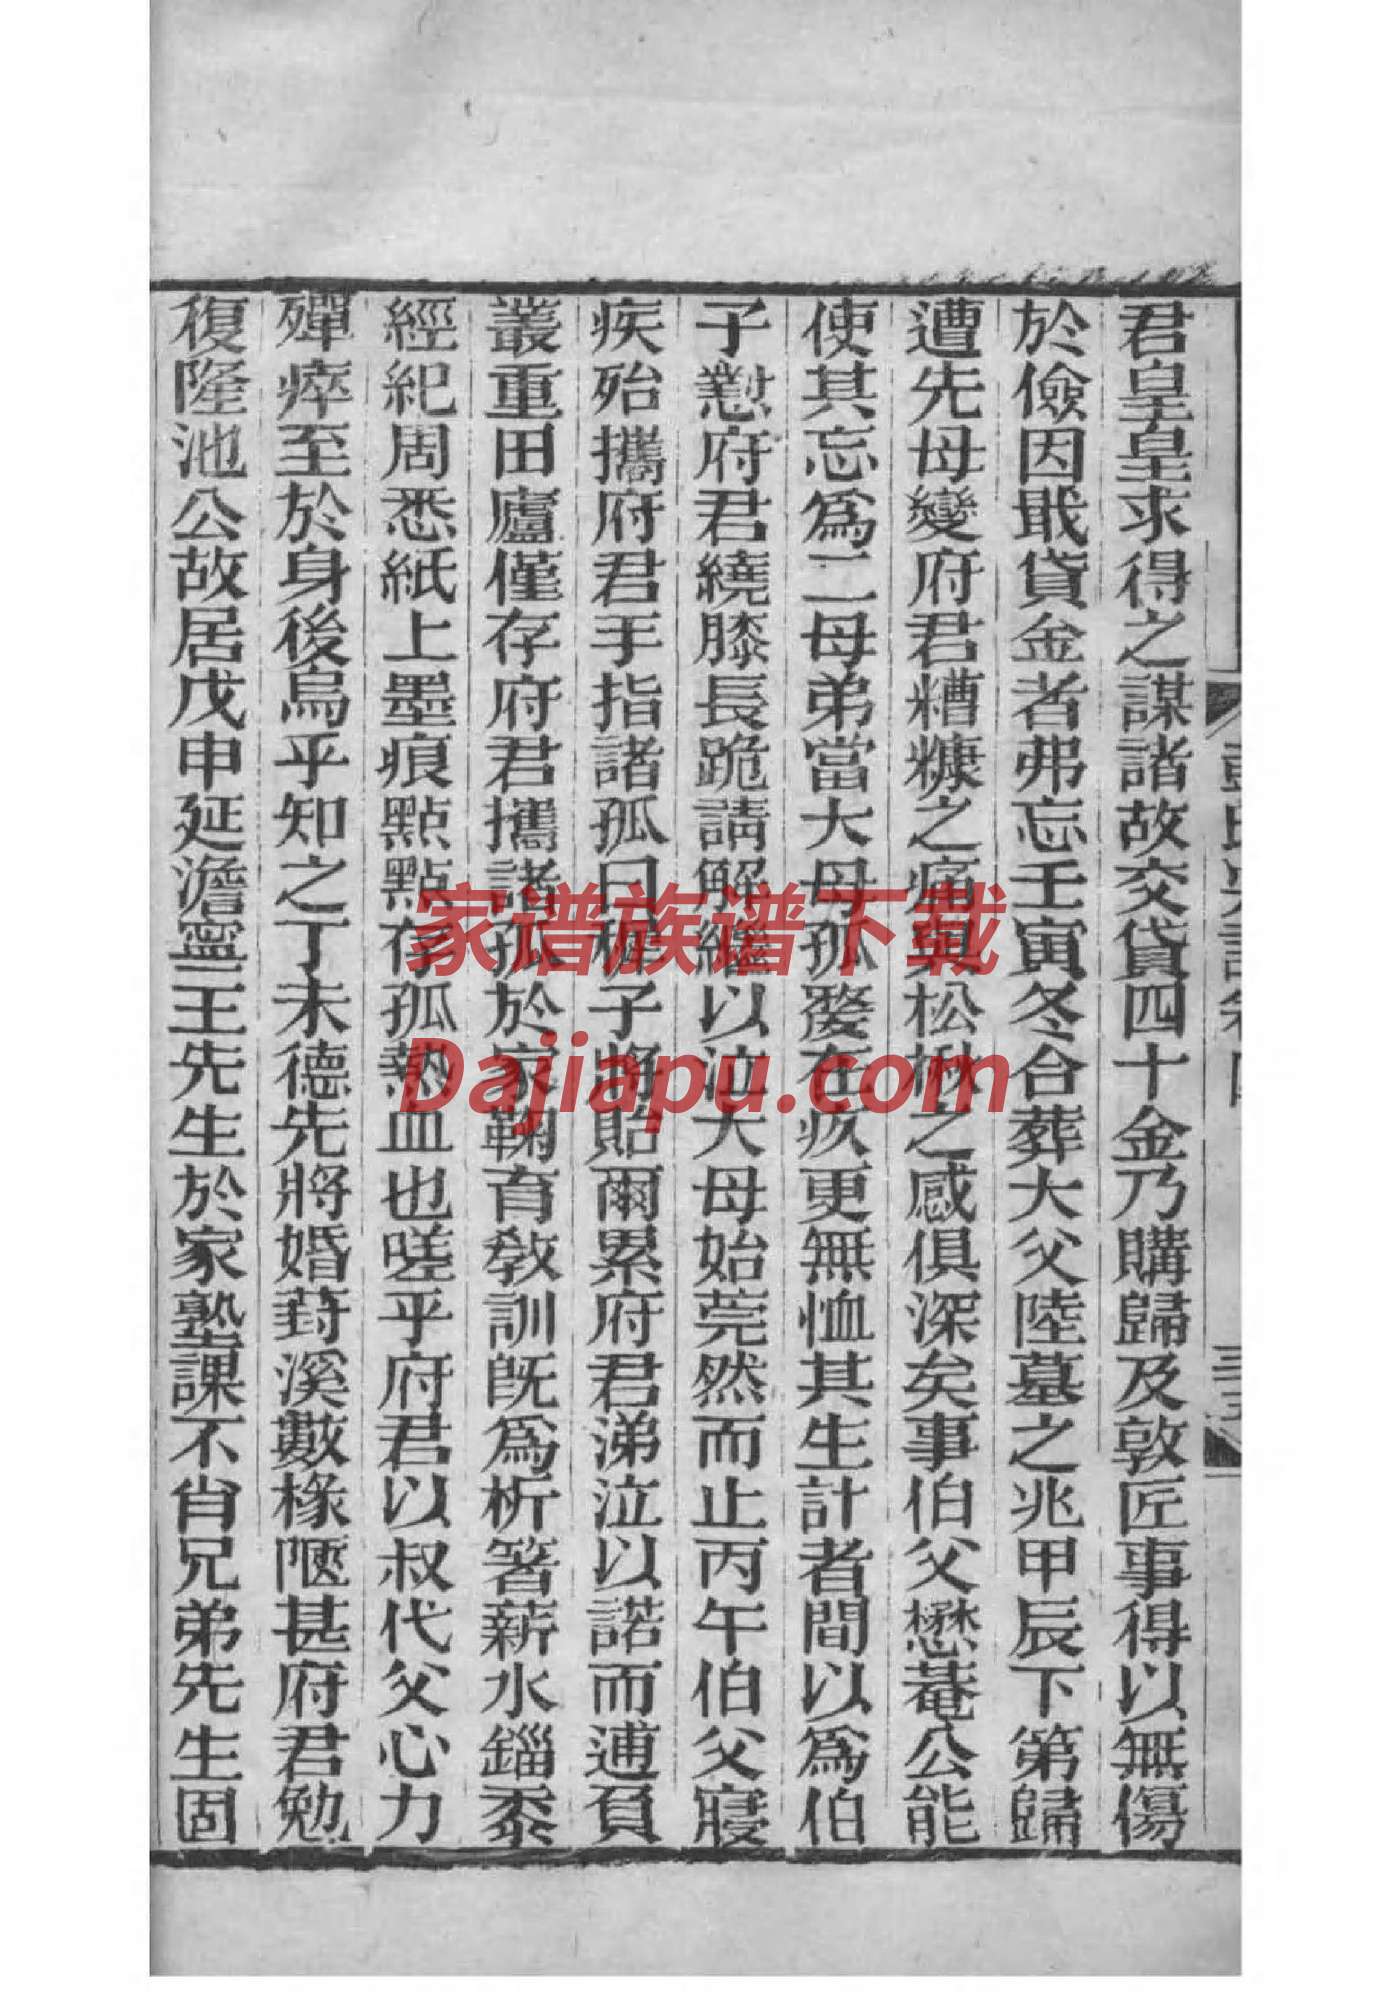 君皇皇求得之謀諸故交貸四十金乃購歸及敦匠事得以無傷
於儉因戢貸金者弗忘壬寅冬合葬大父陸墓之兆甲辰下第歸
遭先母變府君糟糠之痛與松楸之感俱深矣事伯父懋菴公能
使其忘爲二母弟當大母孤嫠在疚更無恤其生計者間以爲伯
子懟府君繞膝長跪請解繼以泣大母始莞然而止丙午伯父寢
疾殆攜府君手指諸孤曰稚子將貽爾累府君涕泣以諾而逋負
叢重田廬僅存府君攜諸孤於家鞠育教訓既爲析箸薪水錙黍
經紀周悉紙上墨痕點點存孤熱血也嗟乎府君以叔代父心力
殫瘁至於身後烏乎知之丁未德先將婚葑溪數椽陋甚府君勉
復隆池公故居戊申延澹寧王先生於家塾課不肖兄弟先生固
彭氏宗譜卷四
家谱族谱下载
Dajiapu.com